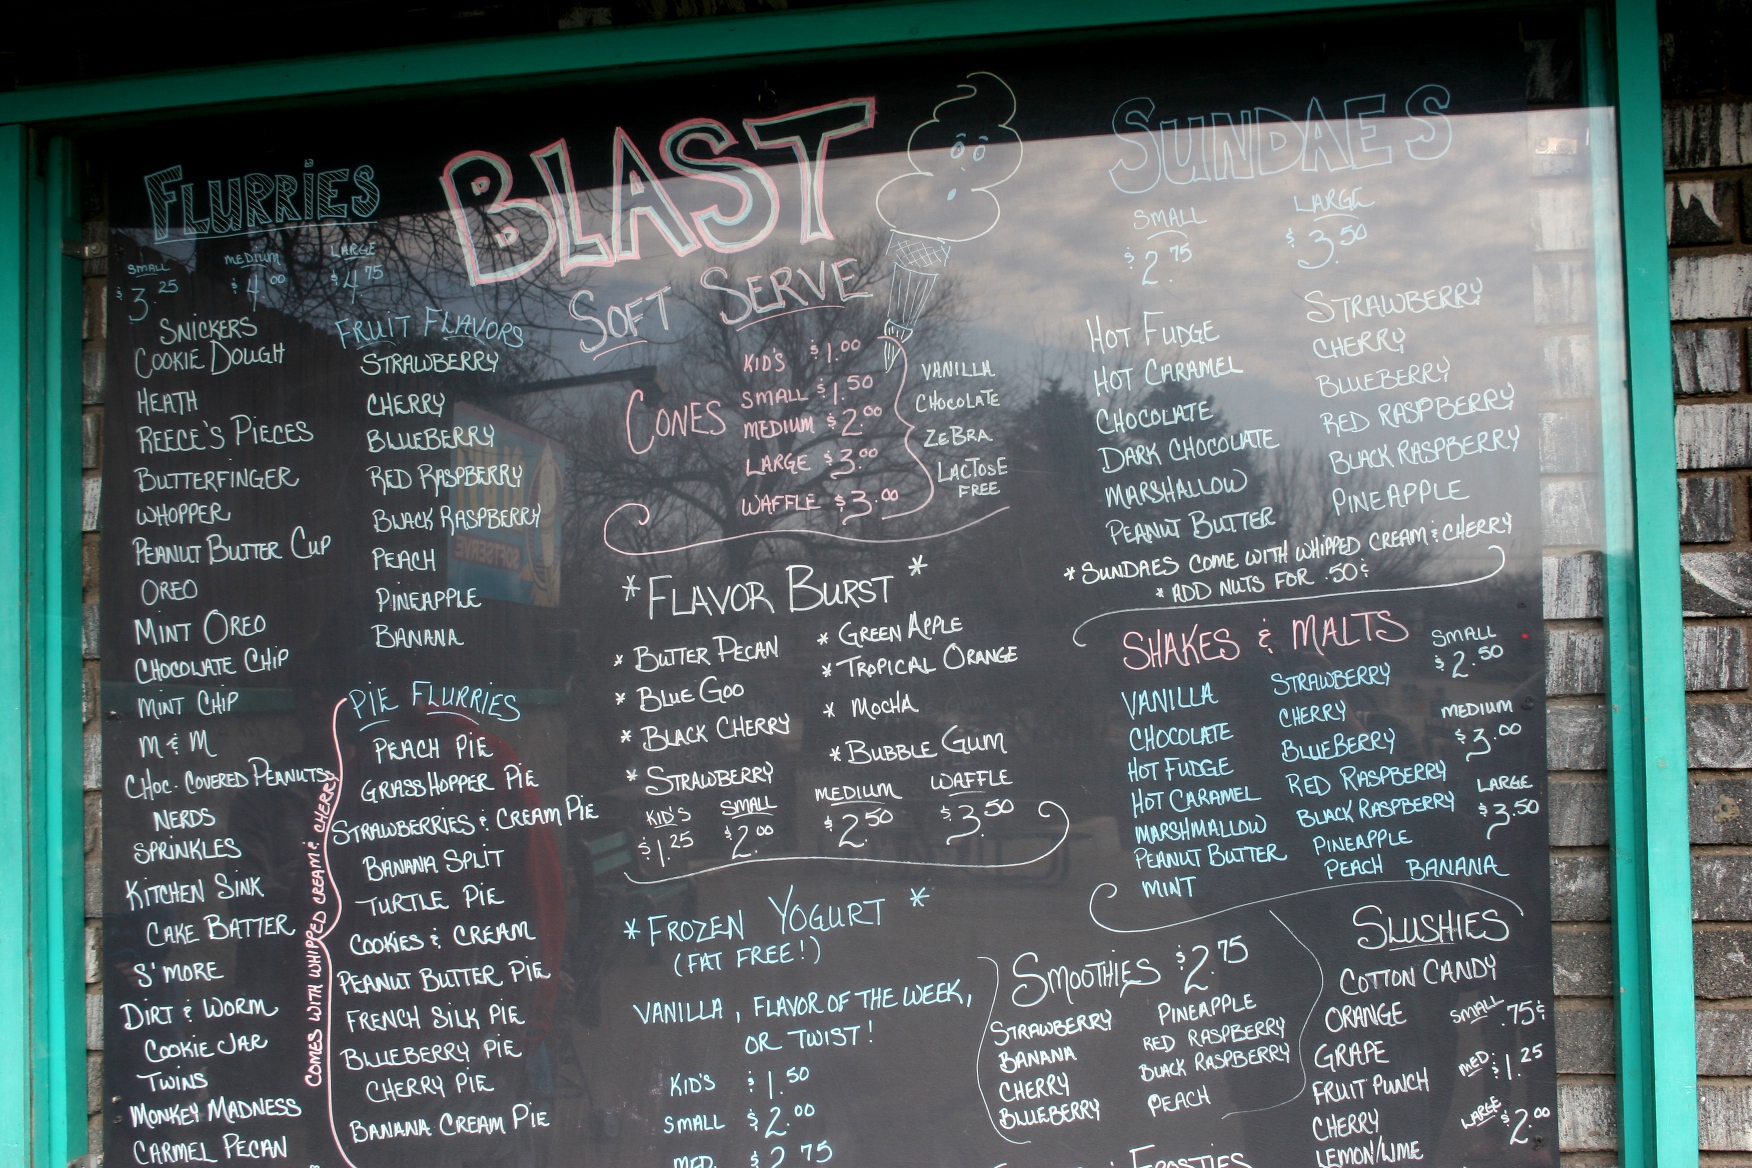 FLURRIES
SMALL MEDIUM LARGE
$3.25 $4.00 $4.75
SNICKERS
COOKIE DOUGH
HEATH
REECE'S PIECES
BUTTERFINGER
WHOPPER
PEANUT BUTTER CUP
OREO
MINT OREO
CHOCOLATE CHIP
MINT CHIP
M & M
CHOC. COVERED PEANUTS
NERDS
SPRINKLES
KITCHEN SINK
CAKE BATTER
S'MORE
DIRT & WORM
COOKIE JAR
TWINS
MONKEY MADNESS
CARMEL PECAN
FRUIT FLAVORS
STRAWBERRY
CHERRY
BLUEBERRY
RED RASPBERRY
BLACK RASPBERRY
PEACH
PINEAPPLE
BANANA
PIE FLURRIES
PEACH PIE
GRASSHOPPER PIE
STRAWBERRIES & CREAM PIE
BANANA SPLIT
TURTLE PIE
COOKIES & CREAM
PEANUT BUTTER PIE
FRENCH SILK PIE
BLUEBERRY PIE
CHERRY PIE
BANANA CREAM PIE
COMES WITH WHIPPED CREAM & CHERRY
BLAST
SOFT SERVE
CONES
KID'S $1.00
SMALL $1.50
MEDIUM $2.00
LARGE $3.00
WAFFLE $3.00
VANILLA
CHOCOLATE
ZEBRA
LACTOSE
FREE
* FLAVOR BURST *
* BUTTER PECAN
* BLUE GOO
* BLACK CHERRY
* STRAWBERRY
* GREEN APPLE
* TROPICAL ORANGE
* MOCHA
* BUBBLE GUM
KID'S SMALL MEDIUM WAFFLE
$1.25 $2.00 $2.50 $3.50
* FROZEN YOGURT *
(FAT FREE!)
VANILLA, FLAVOR OF THE WEEK,
OR TWIST!
KID'S $1.50
SMALL $2.00
MED. $2.75
SUNDAES
SMALL LARGE
$2.75 $3.50
HOT FUDGE
HOT CARAMEL
CHOCOLATE
DARK CHOCOLATE
MARSHALLOW
PEANUT BUTTER
STRAWBERRY
CHERRY
BLUEBERRY
RED RASPBERRY
BLACK RASPBERRY
PINEAPPLE
* SUNDAES COME WITH WHIPPED CREAM & CHERRY
* ADD NUTS FOR .50¢
SHAKES & MALTS
VANILLA
CHOCOLATE
HOT FUDGE
HOT CARAMEL
MARSHMALLOW
PEANUT BUTTER
MINT
STRAWBERRY
CHERRY
BLUEBERRY
RED RASPBERRY
BLACK RASPBERRY
PINEAPPLE
PEACH BANANA
SMALL
$2.50
MEDIUM
$3.00
LARGE
$3.50
SMOOTHIES $2.75
STRAWBERRY
BANANA
CHERRY
BLUEBERRY
PINEAPPLE
RED RASPBERRY
BLACK RASPBERRY
PEACH
SLUSHIES
COTTON CANDY
ORANGE
GRAPE
FRUIT PUNCH
CHERRY
LEMON/LIME
SMALL .75¢
MED. $1.25
LARGE $2.00